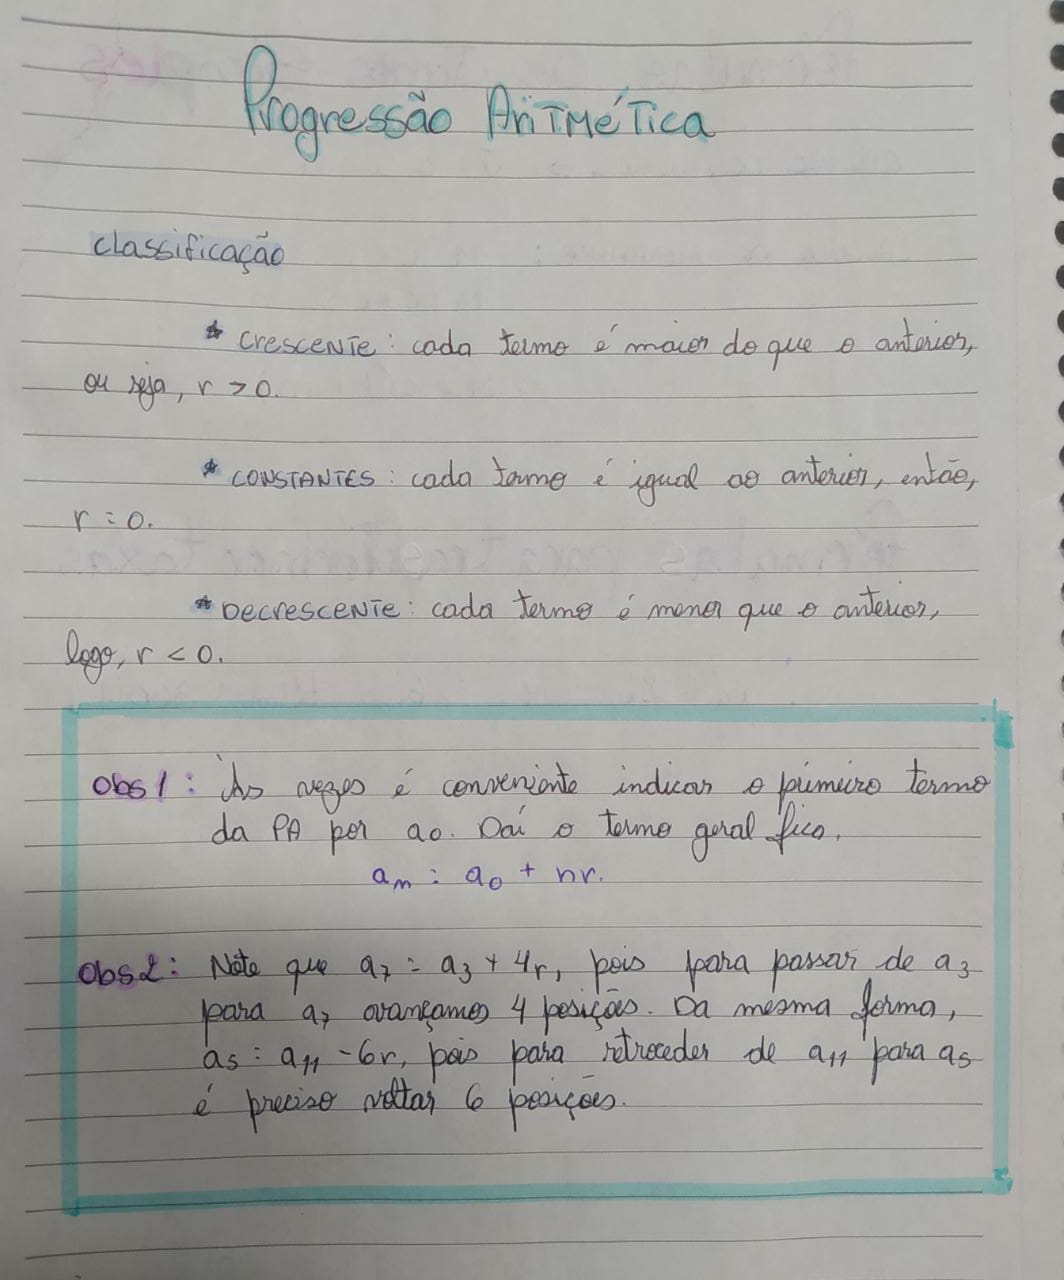 Progressão Aritmética
classificação
* crescente: cada termo é maior do que o anterior,
ou seja, r > 0.
* CONSTANTES: cada termo é igual ao anterior, então,
r = 0.
* Decrescente: cada termo é menor que o anterior,
logo, r < 0.
Obs1: Às vezes é conveniente indicar o primeiro termo
da PA por a0. Daí o termo geral fica.
an = a0 + nr.
Obs2: Note que a7 = a3 + 4r, pois para passar de a3
para a7 avançamos 4 posições. Da mesma forma,
a5 = a11 - 6r, pois para retroceder de a11 para a5
é preciso voltar 6 posições.